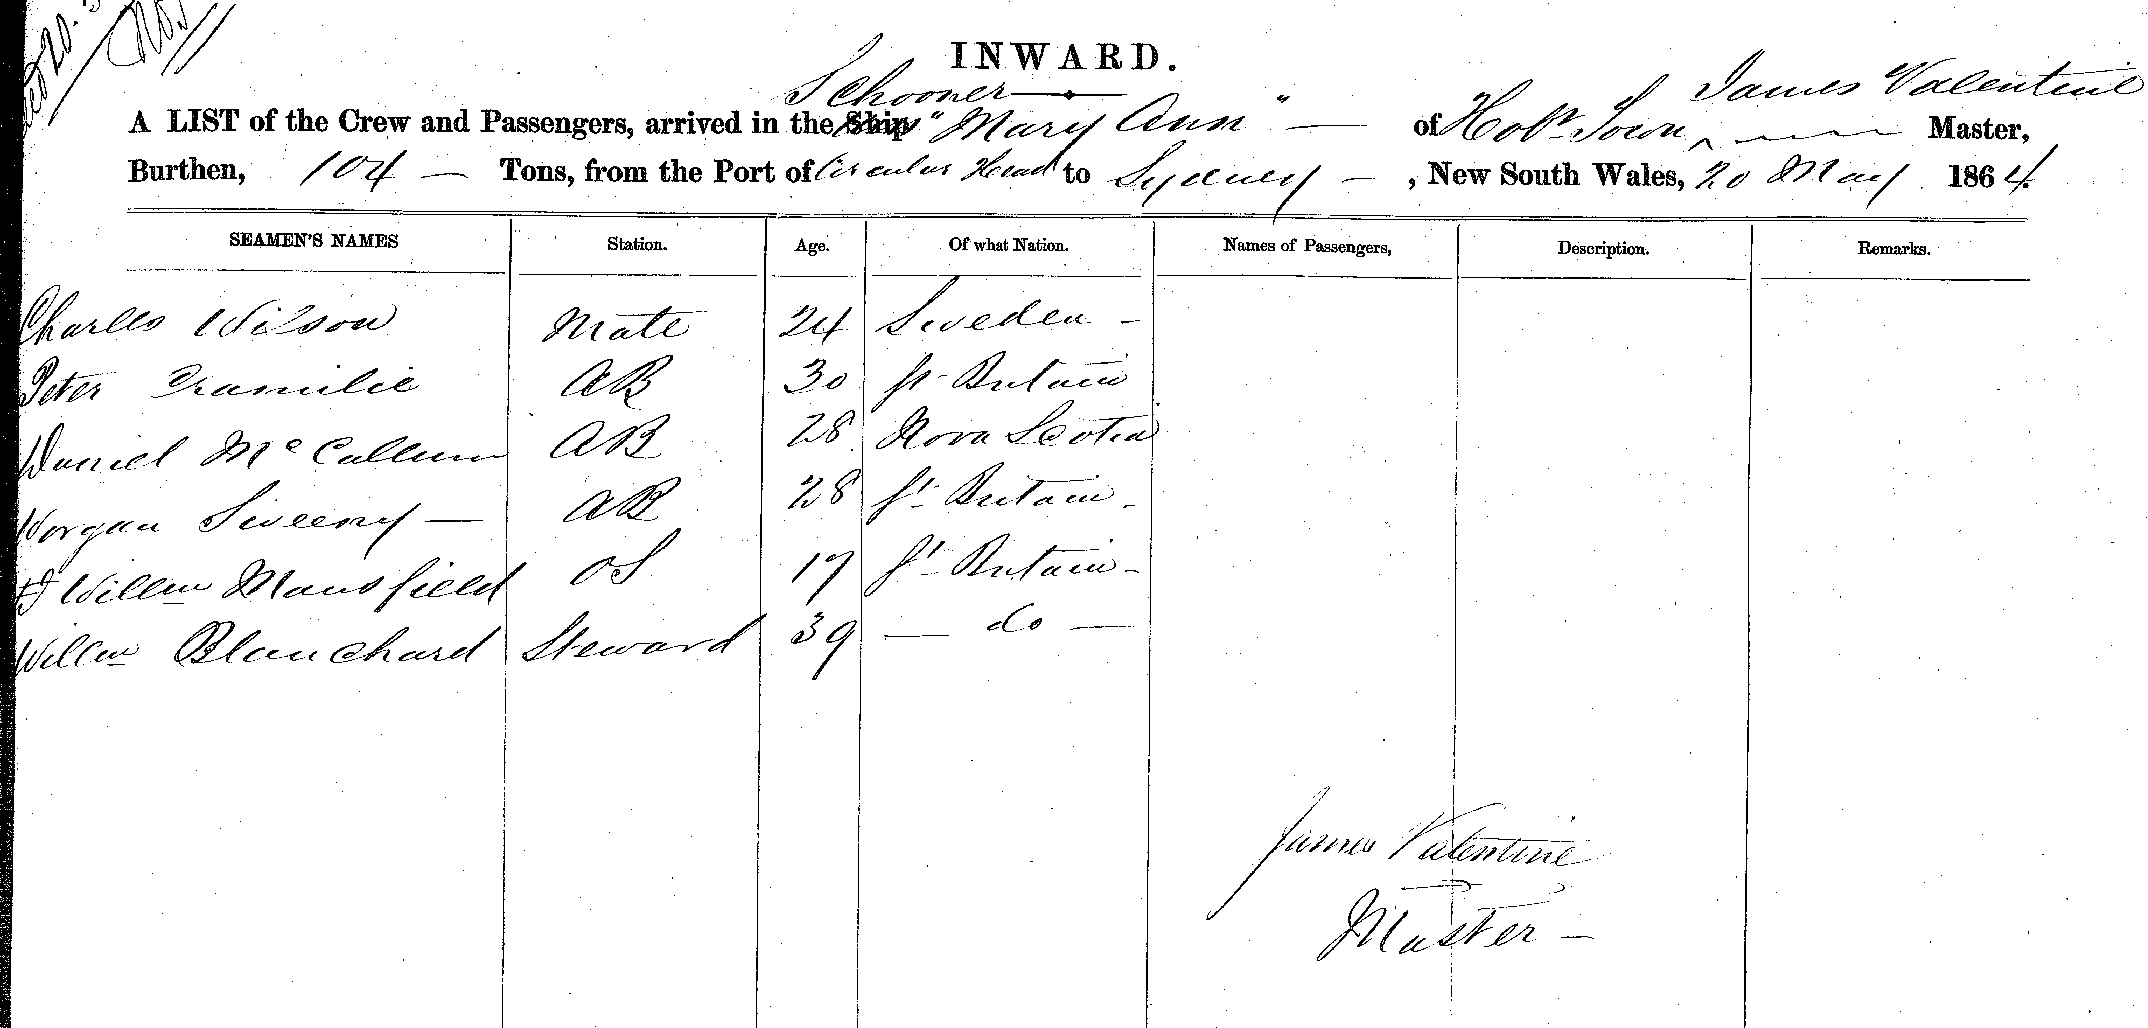 INWARD.
Schooner
A LIST of the Crew and Passengers, arrived in the Ship "Mary Ann" — of Hobt Town, James Valentine Master,
Burthen, 104 — Tons, from the Port of Circular Head to Sydney — , New South Wales, 20 May 1864.
SEAMEN'S NAMES Station. Age. Of what Nation. Names of Passengers, Description. Remarks.
Charles Wilson Mate 24 Sweden -
Peter AB 30 Gt Britain
Daniel McCallum AB 28 Nova Scotia
Morgan Sweeny — AB 28 Gt Britain -
Willm Mansfield OS 17 Gt Britain -
Willm Blanchard Steward 39 — do —
James Valentine
Master —